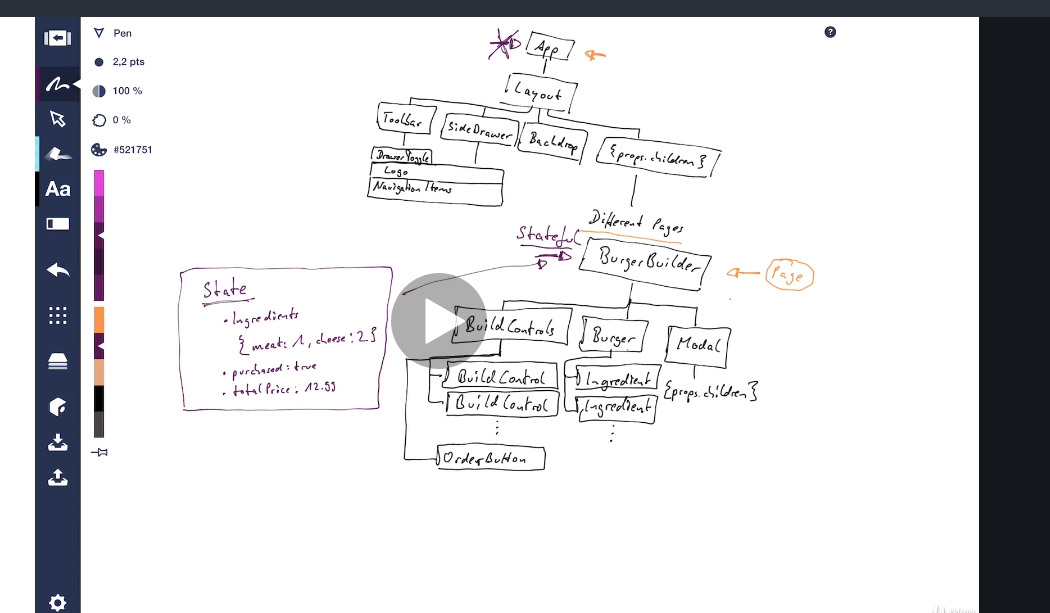 Pen
2,2 pts
100 %
0 %
#521751
Aa
?
App
Layout
Toolbar
SideDrawer
Backdrop
{props.children}
DrawerToggle
Logo
Navigation Items
Different Pages
Stateful
BurgerBuilder
Page
State
• Ingredients
{meat: 1, cheese: 2}
• purchased: true
• totalPrice: 12.99
BuildControls
Burger
Modal
BuildControl
Ingredient
{props.children}
BuildControl
Ingredient
⋮
⋮
OrderButton